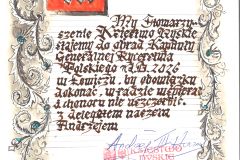 My Stowarzy-
szenie Księstwo Ryskie
stajemy do obrad Kapituły
Generalnej Rycerstwa
Polskiego A.D. 2026
w Łowiczu, by obowiązku
dokonać, w radzie wspierać
i honoru nie uszczerbić.
z delegatem naszem
Andrzejem
KSIĘSTWO
RYSKIE